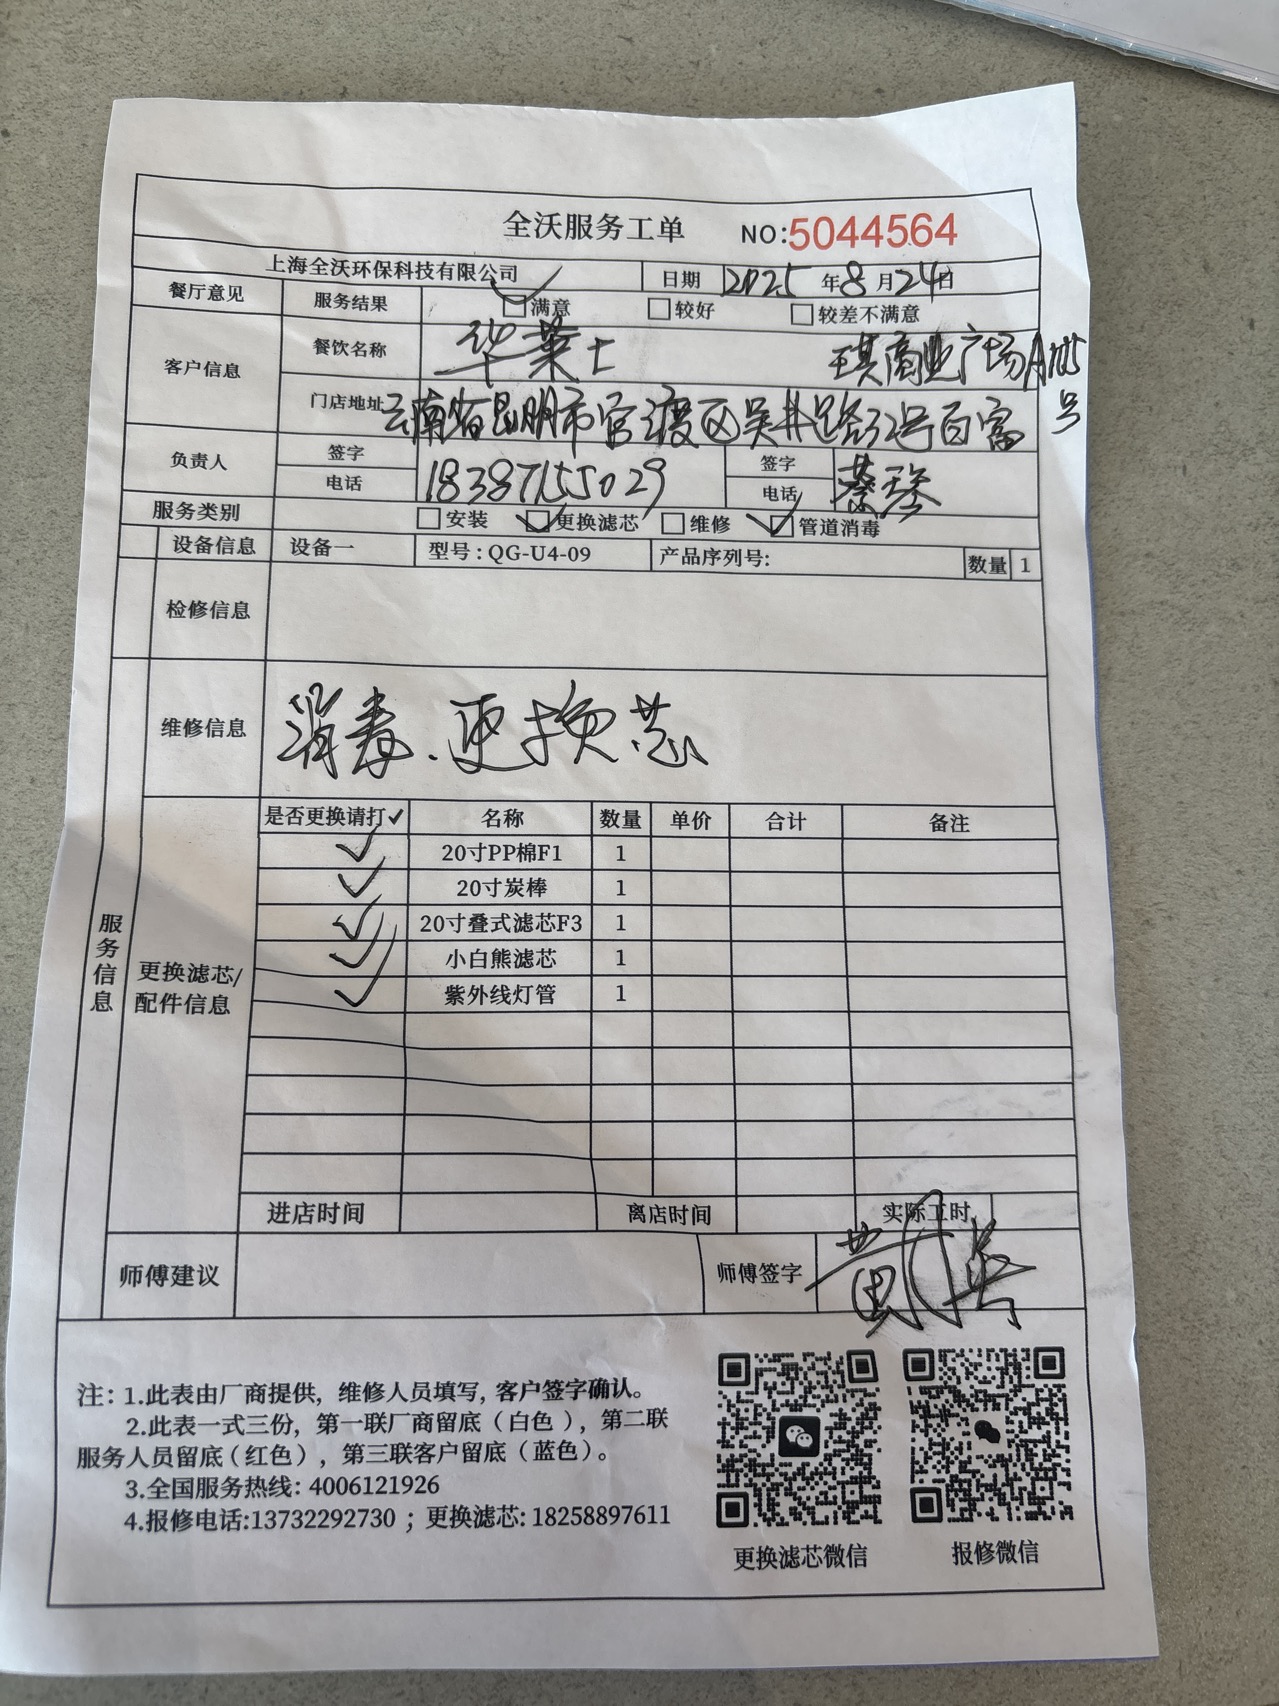 全沃服务工单 NO:5044564
上海全沃环保科技有限公司 日期 2025 年 8 月 24 日
餐厅意见 服务结果 满意 较好 较差不满意
客户信息 餐饮名称 华莱士
门店地址 云南省昆明市官渡区吴井路32号百富
琪商业广场A105
号
负责人 签字 签字
电话 18387155029 电话
服务类别 安装 更换滤芯 维修 管道消毒
设备信息 设备一 型号:QG-U4-09 产品序列号: 数量 1
检修信息
维修信息 消毒.更换芯
服务信息
更换滤芯/
配件信息
是否更换请打✓ 名称 数量 单价 合计 备注
✓ 20寸PP棉F1 1
✓ 20寸炭棒 1
✓ 20寸叠式滤芯F3 1
✓ 小白熊滤芯 1
✓ 紫外线灯管 1
进店时间 离店时间 实际工时
师傅建议 师傅签字
注: 1.此表由厂商提供, 维修人员填写, 客户签字确认。
2.此表一式三份, 第一联厂商留底(白色), 第二联
服务人员留底(红色), 第三联客户留底(蓝色)。
3.全国服务热线: 4006121926
4.报修电话:13732292730 ; 更换滤芯: 18258897611
更换滤芯微信 报修微信